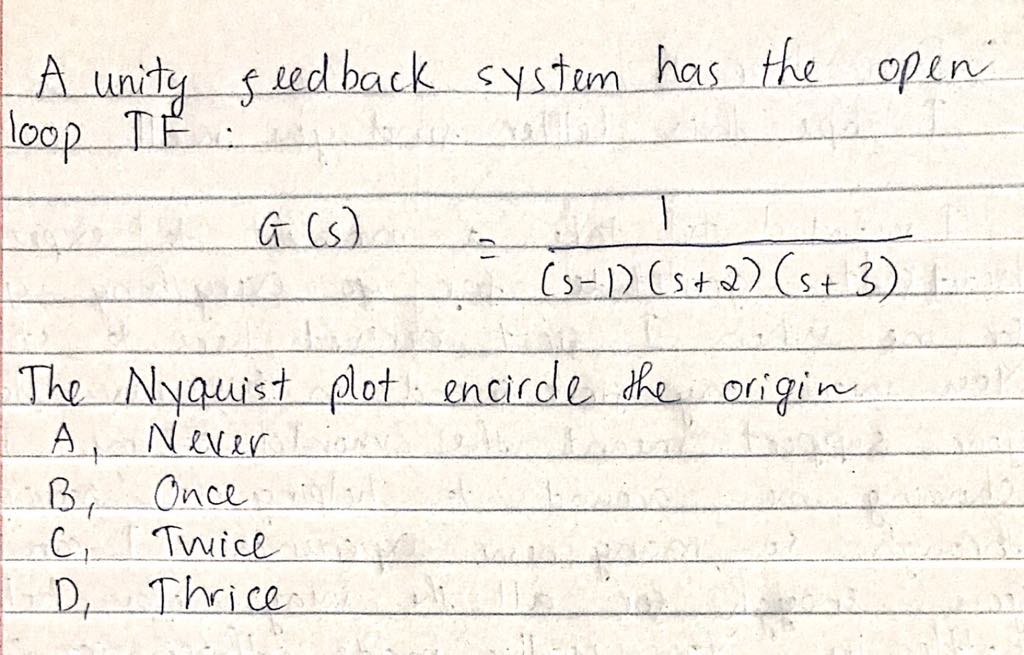 A unity feedback system has the open
loop TF :
G(s) = 1 / (s-1)(s+2)(s+3)
The Nyquist plot encircle the origin
A, Never
B, Once
C, Twice
D, Thrice